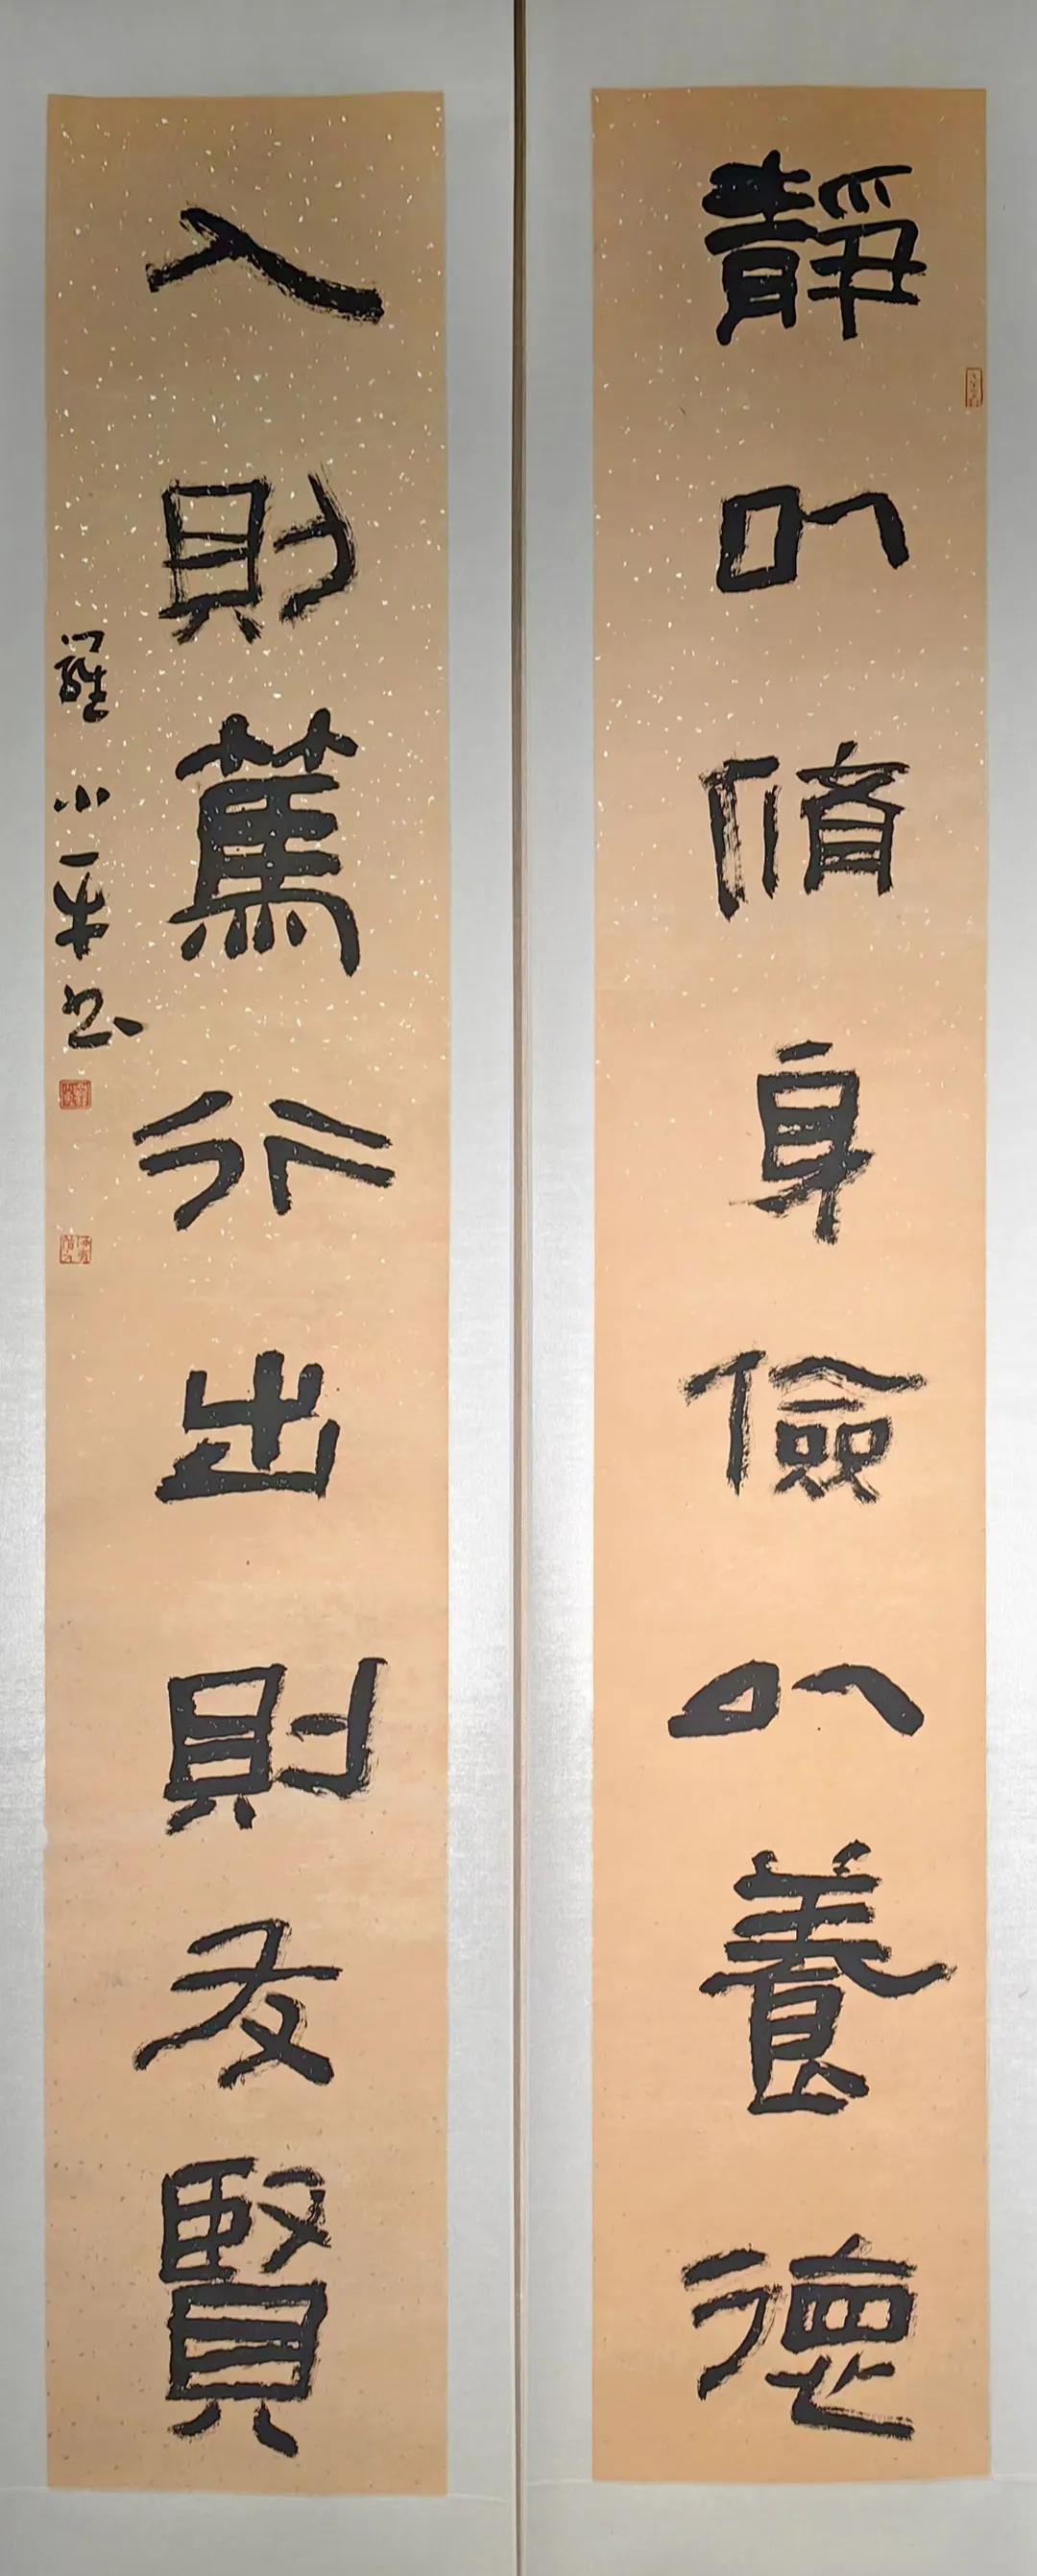 靜以脩身儉以養德
入則篤行出則友賢
羅小平書